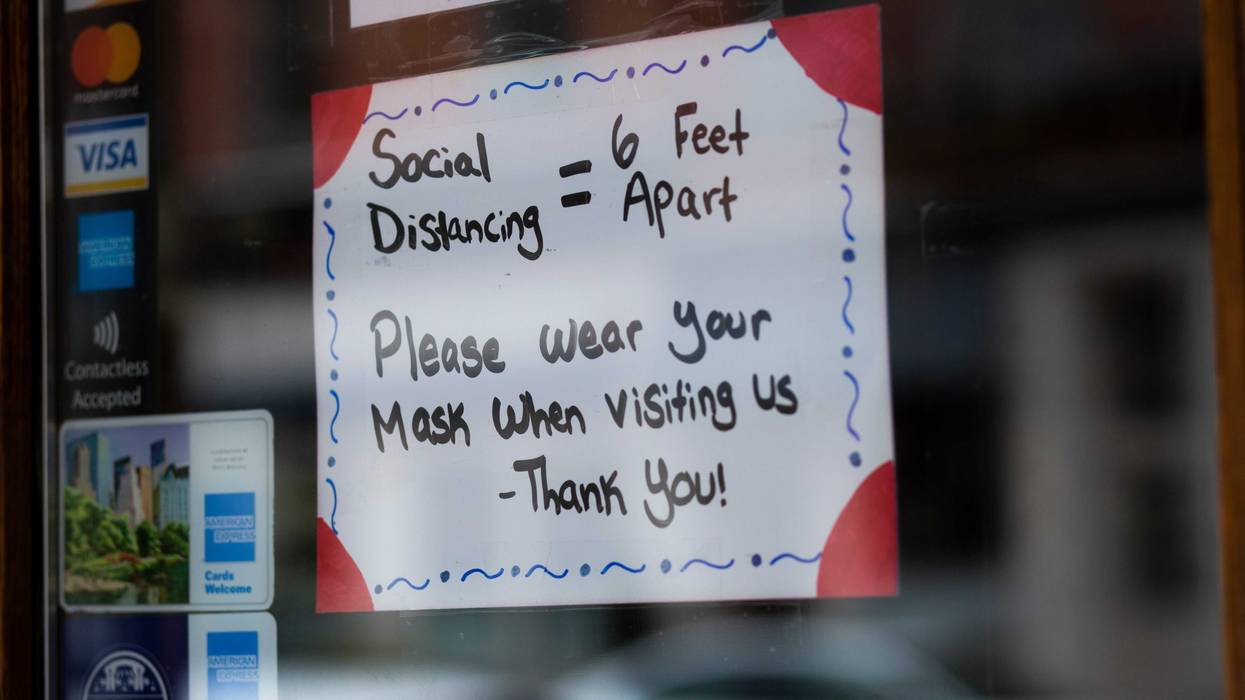 mastercard
VISA
AMERICAN
EXPRESS
Contactless
Accepted
AMERICAN
EXPRESS
Cards
Welcome
AMERICAN
EXPRESS
Social
Distancing
= 6 Feet
Apart
Please wear your
Mask when visiting us
-Thank you!